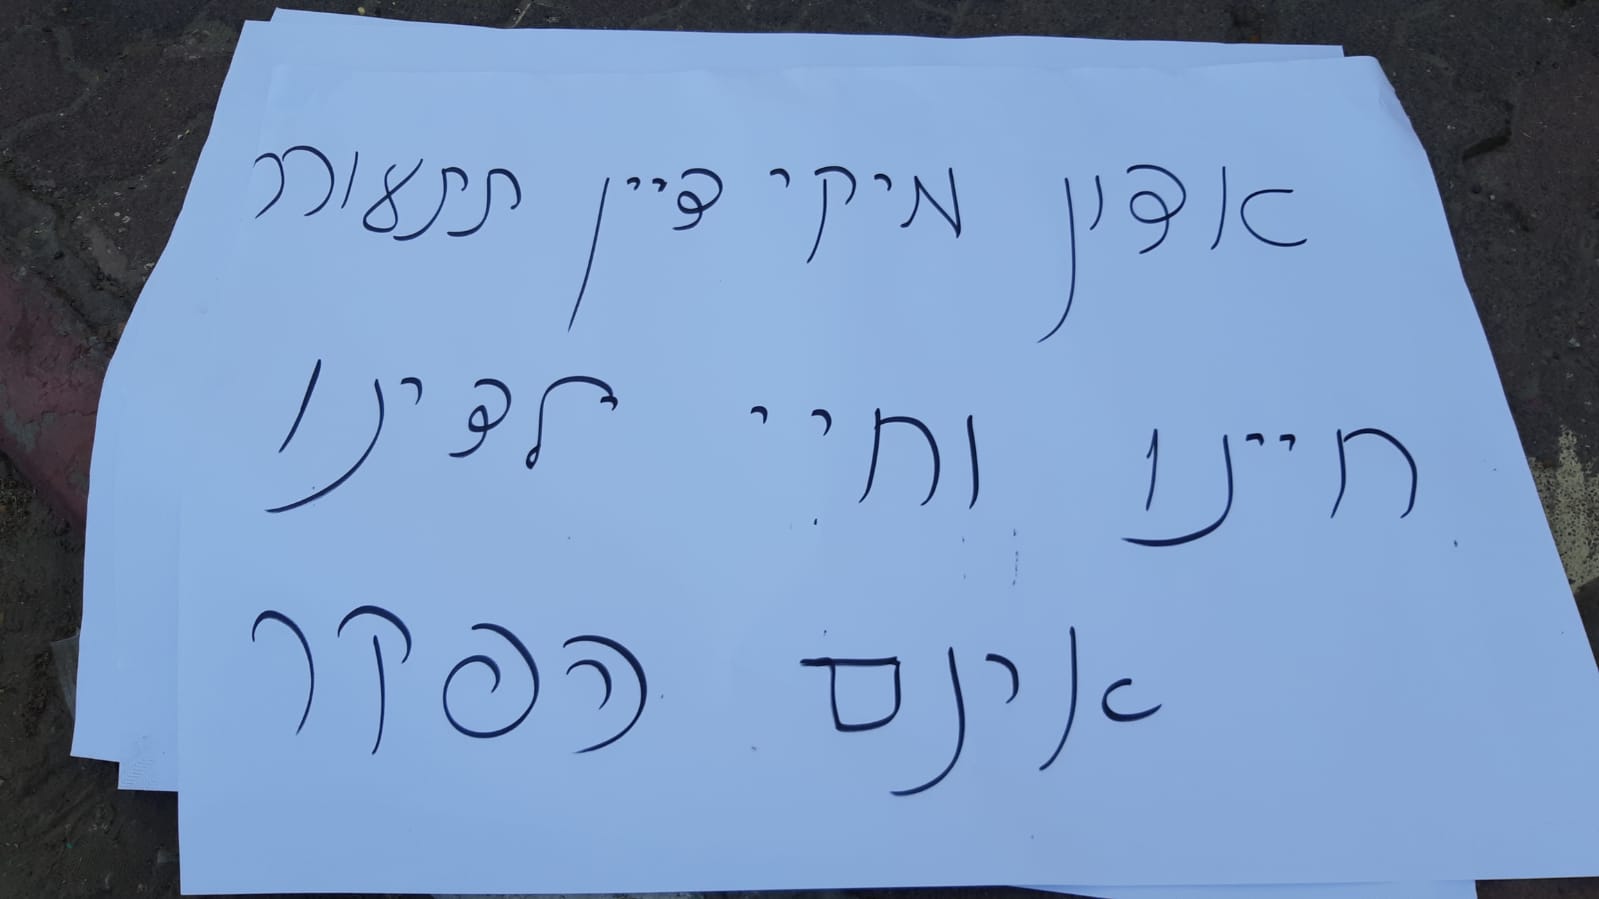 אדון מיקי דיין תתעורר
חיינו וחיי ילדינו
אינם הפקר